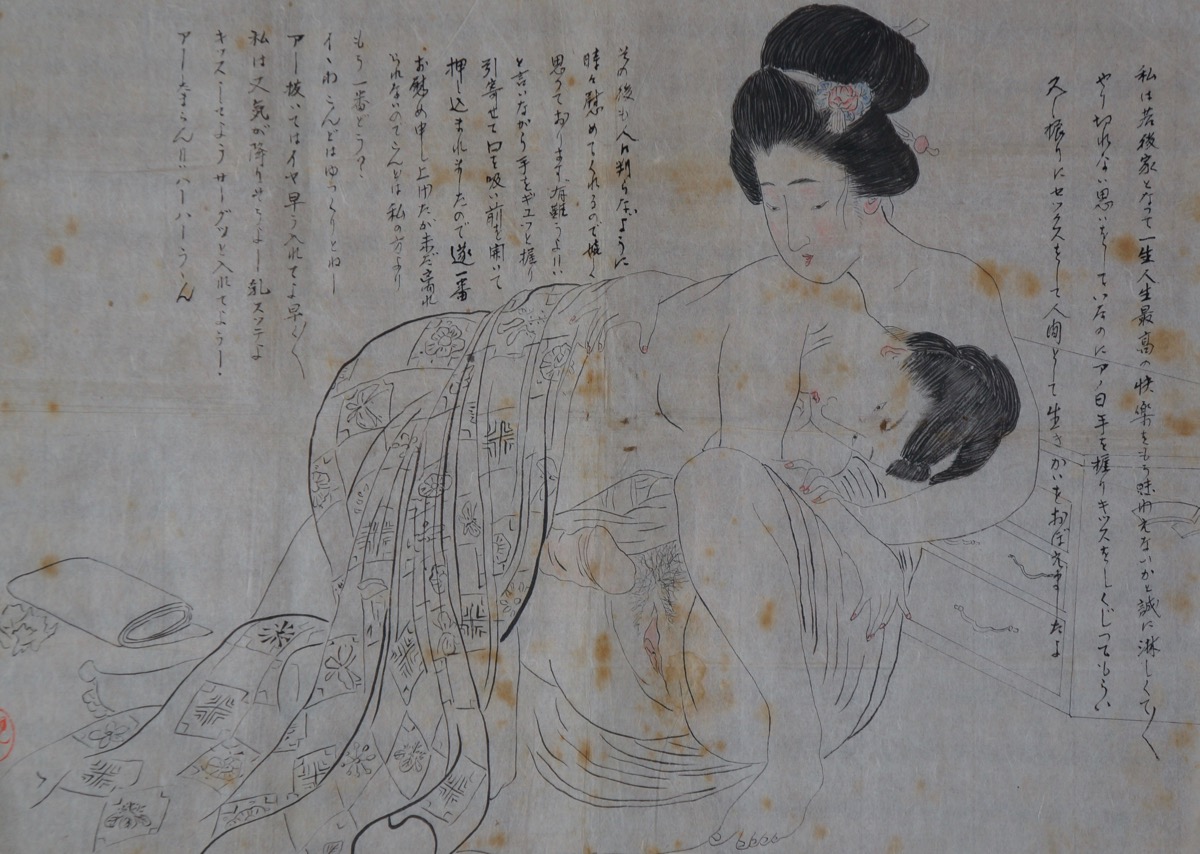 私は若後家となって一生人生最高の快楽をもう味わえないかと誠に淋しくて〱
やり切れない思いをしていたのにアノ日手を握りキッスをしくじってもらい
振りにセックスをして人間として生きかいをおぼえましたよ
その後も人に判らないように
時々慰めてくれるので嬉しく
思うております、有難うよ!!
と言いながら手をギュッと握り
引寄せて口を吸い前を開いて
押し込まれましたので遂一番
お慰め申し上げたが未だ離れ
られないのでこんどは私の方より
もう一番どう?
イヽわこんどはゆっくりとねー
アー抜いてはイヤ早う入れてよ早く〱
私は又気が降りそうよー乳スッテよ
キッスしてようサーグッと入れてよう!
アーたまらん!!ハーハーうーん